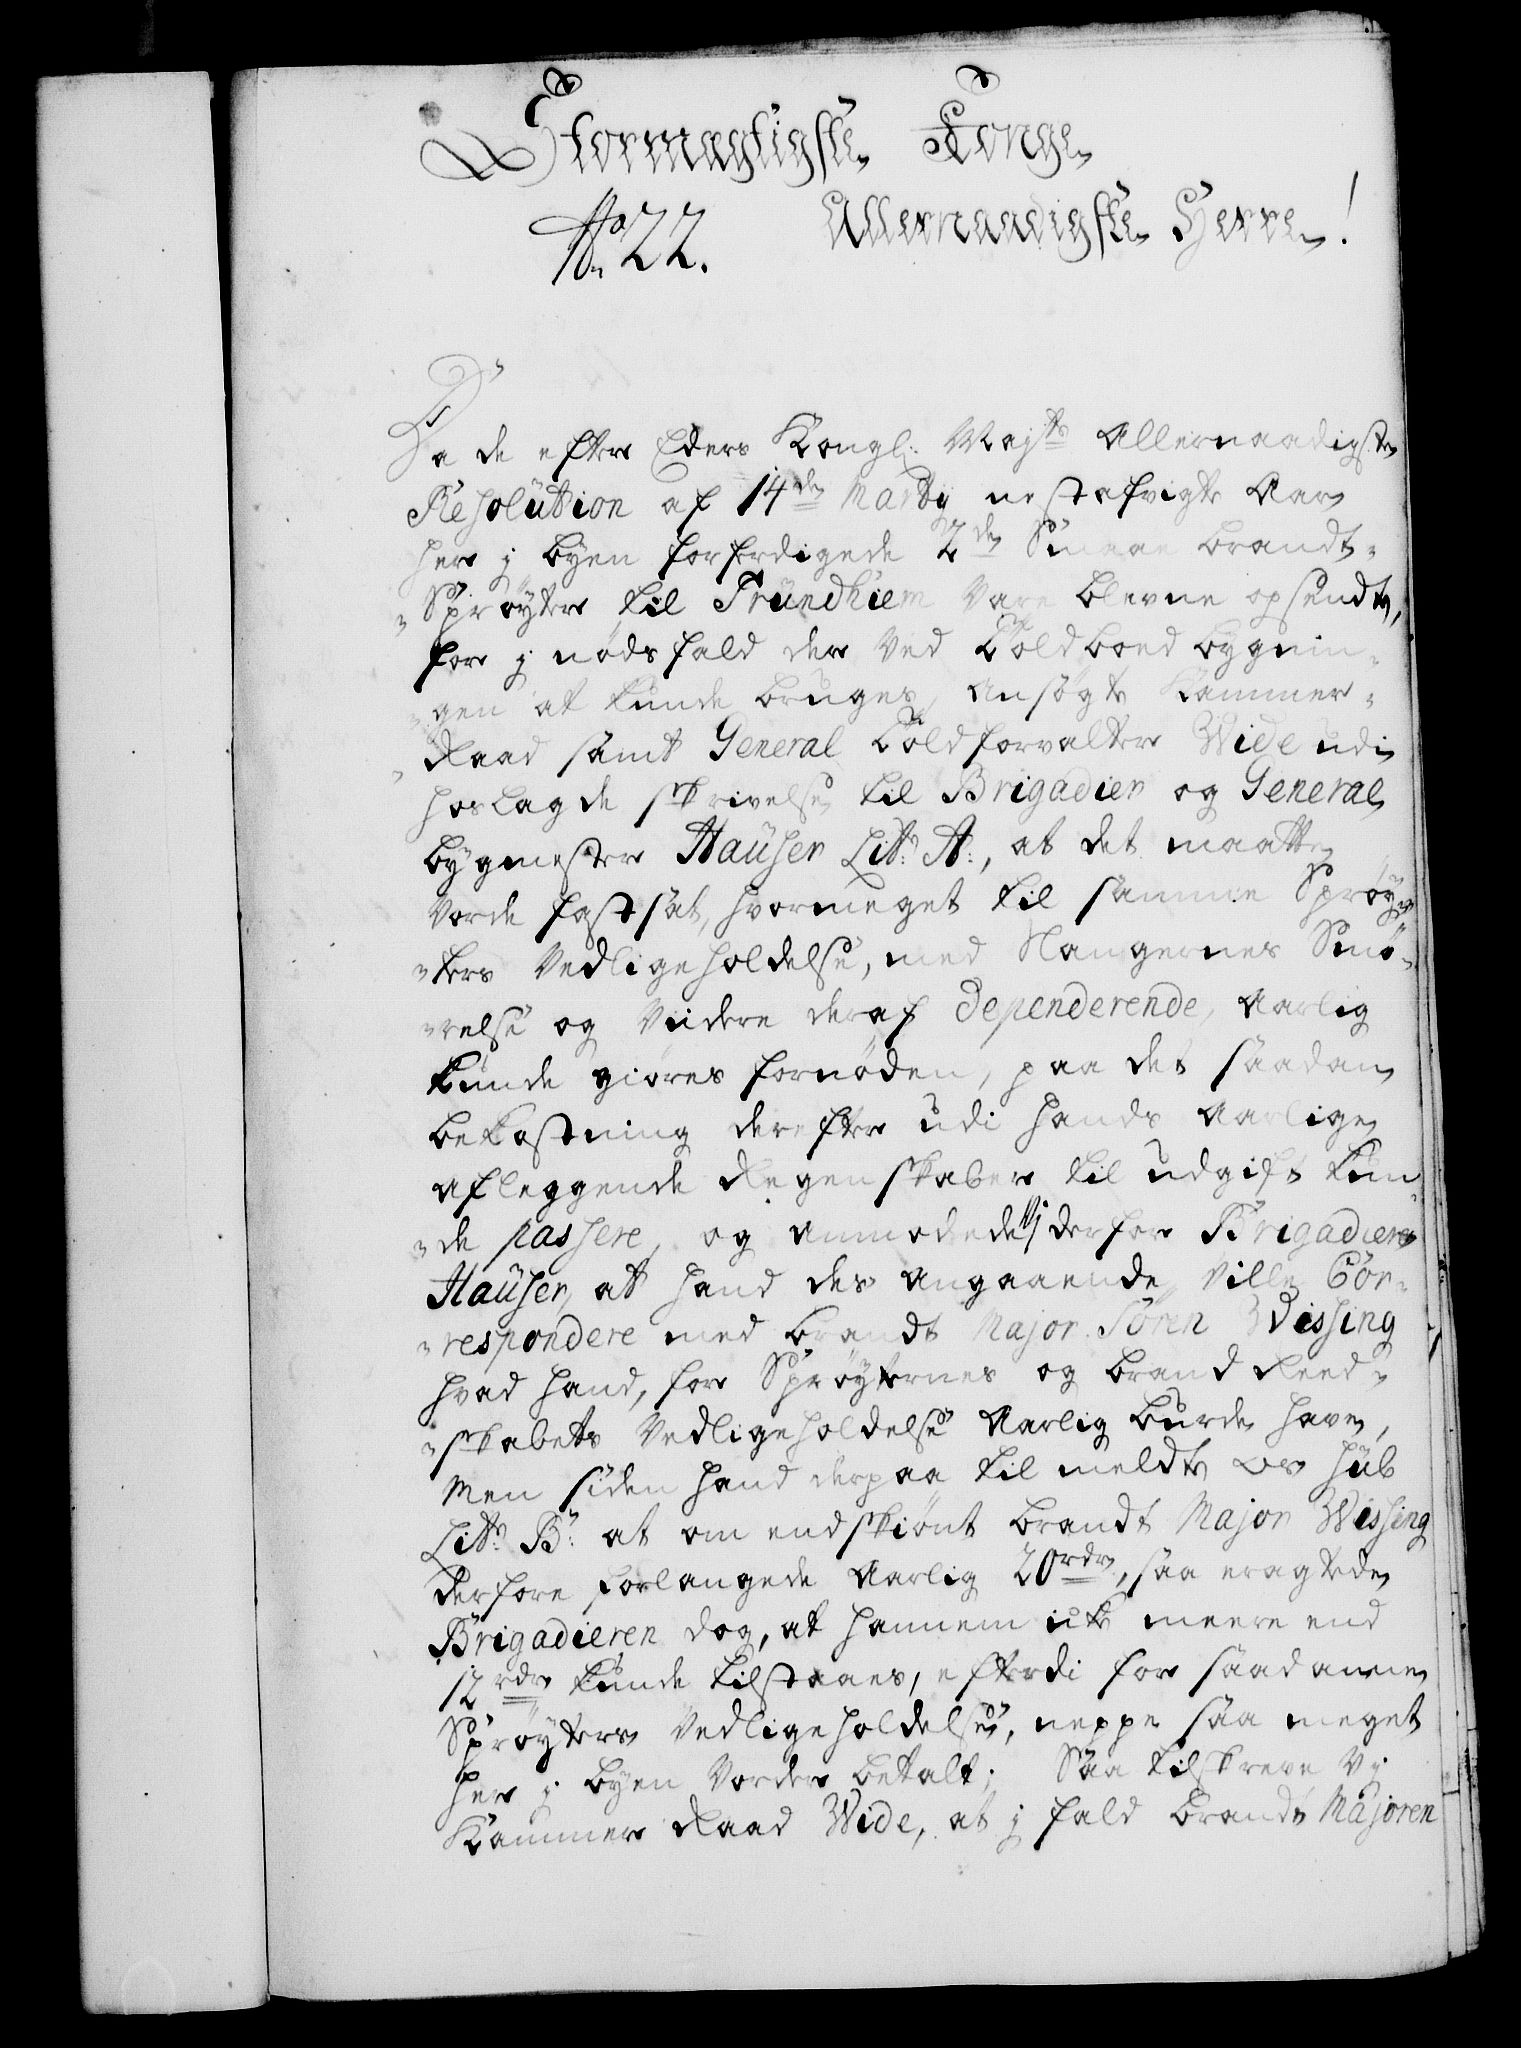 Stormægtigste Konge
No 22. Allernaadigste Herre!
Da de efter Eders Kongl: Majts Allernaadigste
Resolution af 14de Marty nestafvigte Aar
her j byen forferdigede 2de Smaae brandt-
Sprøyter til Trundhiem vare blevne opsendte,
for j nøds fald der ved Toldboed bygnin-
gen at kunde bruges, ansøgte Kammer-
Raad samt General Toldforvalter Wide udi
hoslagde skrivelse til Brigadier og General
bygmester Hauser Litr: A:, at det maatte
vorde fastsat, hvormeget til samme Sprøy-
ters Vedligeholdelse, med Slangernes Smø-
relse og viidere deraf dependerende, Aarlig
kunde giøres fornøden, paa det saadan
bekostning derefter udi hands Aarlige
aflæggende Regenskaber til udgift kun-
de passere, og anmodede Vj derfor Brigadier
Hauser, at hand des angaaende ville Cor-
respondere med brandt Major Sören Wissing
hvad hand, for Sprøyternes og brand Reed-
skabets Vedligeholdelse Aarlig burde have,
Men siden hand derpaa til meldte os sub
Litr: B: at om endskiønt brandt Major Wissing
derfore forlangede Aarlig 20 rdr, saa eragtede
Brigadieren dog, at hannem icke meere end
12 rdr kunde tilstaaes, efterdi for saadanne
Sprøyters Vedligeholdelse, neppe saa meget
her j byen vorder betalt; Saa tilskreve Vj
Kammer Raad Wide, at j fald brandt Majoren